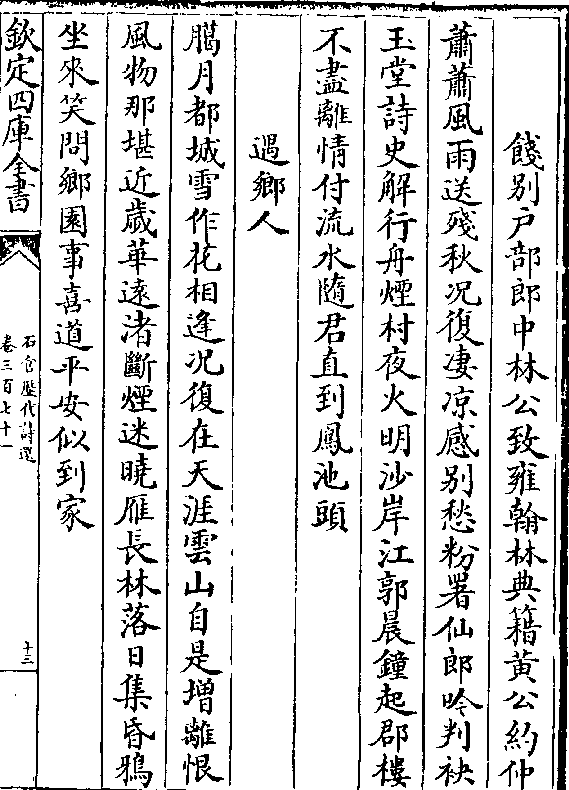 餞别户部郎中林公致雍翰林典籍黄公約仲
蕭蕭風雨送殘秋况復凄凉感别愁粉署仙郎吟判袂
玉堂詩史解行舟煙村夜火明沙岸江郭晨鐘起郡樓
不盡離情付流水隨君直到鳳池頭
遇鄉人
臈月都城雪作花相逢况復在天涯雲山自是增離恨
風物那堪近歲華遠渚斷煙迷曉雁長林落日集昏鴉
坐來笑問鄉園事喜道平安似到家
欽定四庫全書
石倉歴代詩選
卷三百七十一
十三